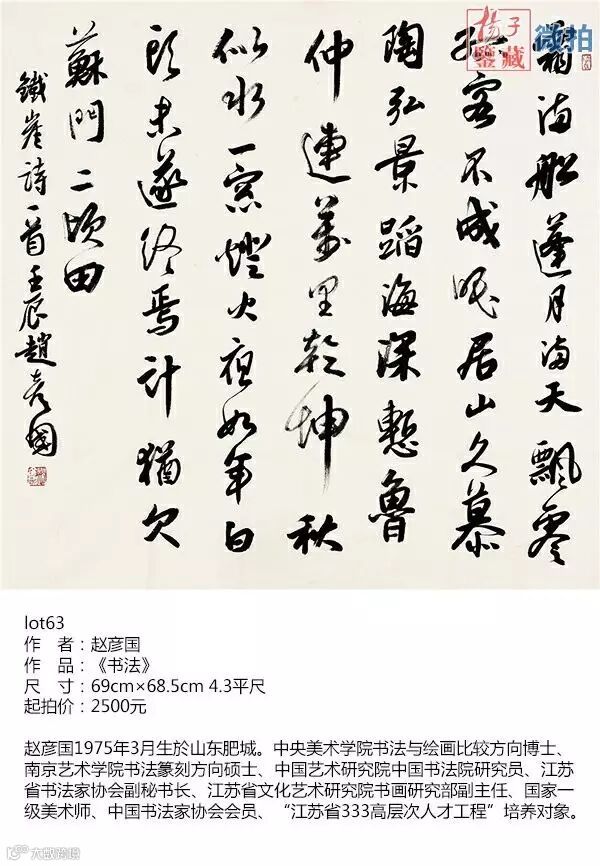 揚子
鑒藏
微拍
霜满船篷月满天飄零
孤客不成眠居山久慕
陶弘景蹈海深慙魯
仲連萬里乾坤秋
似水一窓燈火夜如年白
頭未遂終焉計猶欠
蘇門二頃田
鐵崖詩一首壬辰趙彥國
lot63
作 者：赵彦国
作 品：《书法》
尺 寸：69cm×68.5cm 4.3平尺
起拍价：2500元
赵彦国1975年3月生於山东肥城。中央美术学院书法与绘画比较方向博士、
南京艺术学院书法篆刻方向硕士、中国艺术研究院中国书法院研究员、江苏
省书法家协会副秘书长、江苏省文化艺术研究院书画研究部副主任、国家一
级美术师、中国书法家协会会员、“江苏省333高层次人才工程”培养对象。
大数跨境